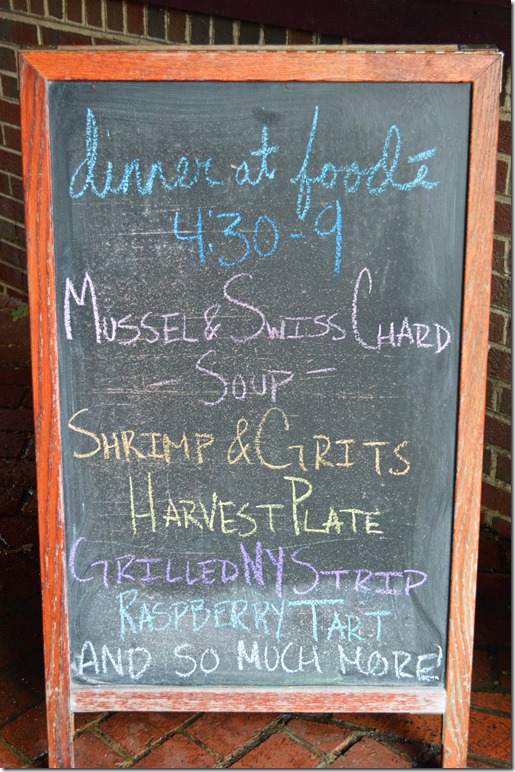 dinner at foodē
4:30-9
MUSSEL & SWISS CHARD
- SOUP -
SHRIMP & GRITS
HARVEST PLATE
GRILLED NY STRIP
RASPBERRY TART
AND SO MUCH MORE!